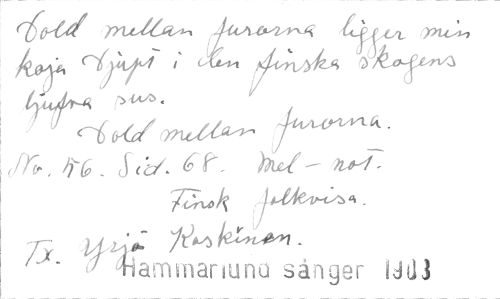 Dold mellan furorna ligger min
koja Djupt i den finska skogens
ljufva sus.
Dold mellan furorna.
No. 56. Sid. 68. Mel-not.
Finsk folkvisa.
Tx. Yrjö Koskinen.
Hammarlund sånger 1903